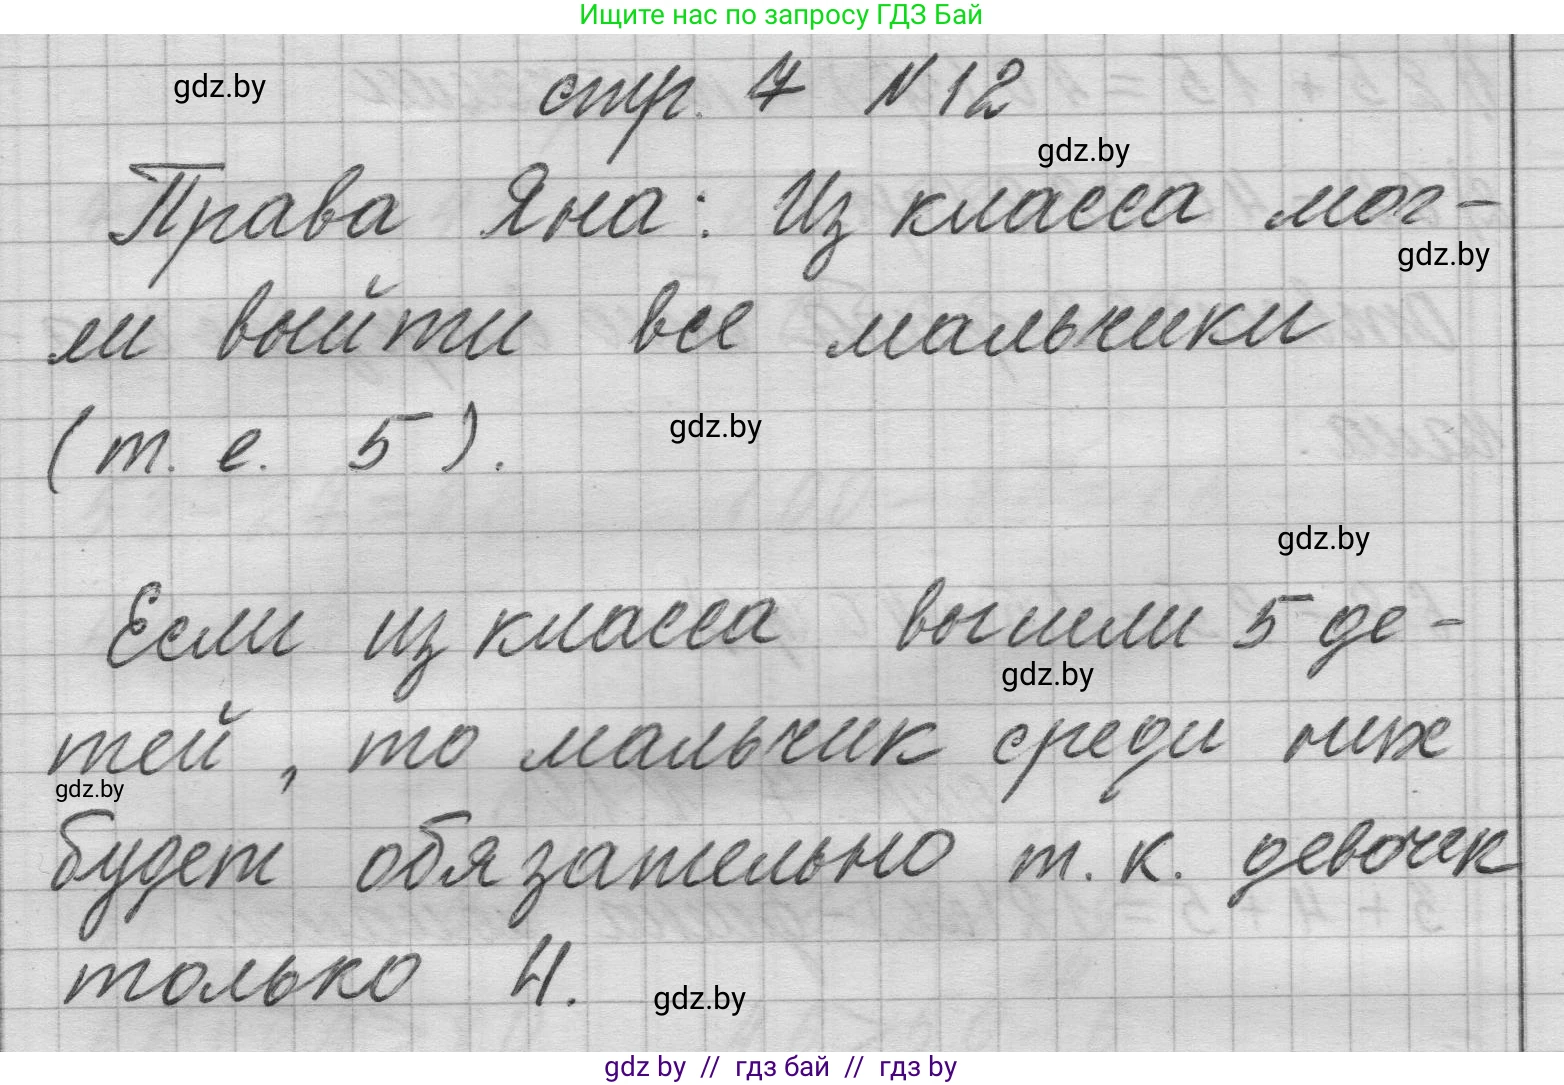 Ищите нас по запросу ГДЗ Бай
gdz.by
стр. 7 №12
gdz.by
Права Яна: Из класса мог-
gdz.by
ли выйти все мальчики
(т. е. 5).
gdz.by
gdz.by
Если из класса вышли 5 де-
gdz.by
тей, то мальчик среди них
gdz.by
будет обязательно т. к. девочек
только 4.
gdz.by
gdz by // гдз бай // гдз by